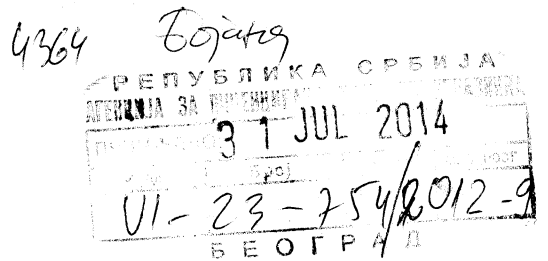 4364 Бојана
РЕПУБЛИКА СРБИЈА
АГЕНЦИЈА ЗА
31 JUL 2014
Број
VI-23-754/2012-9
БЕОГРАД